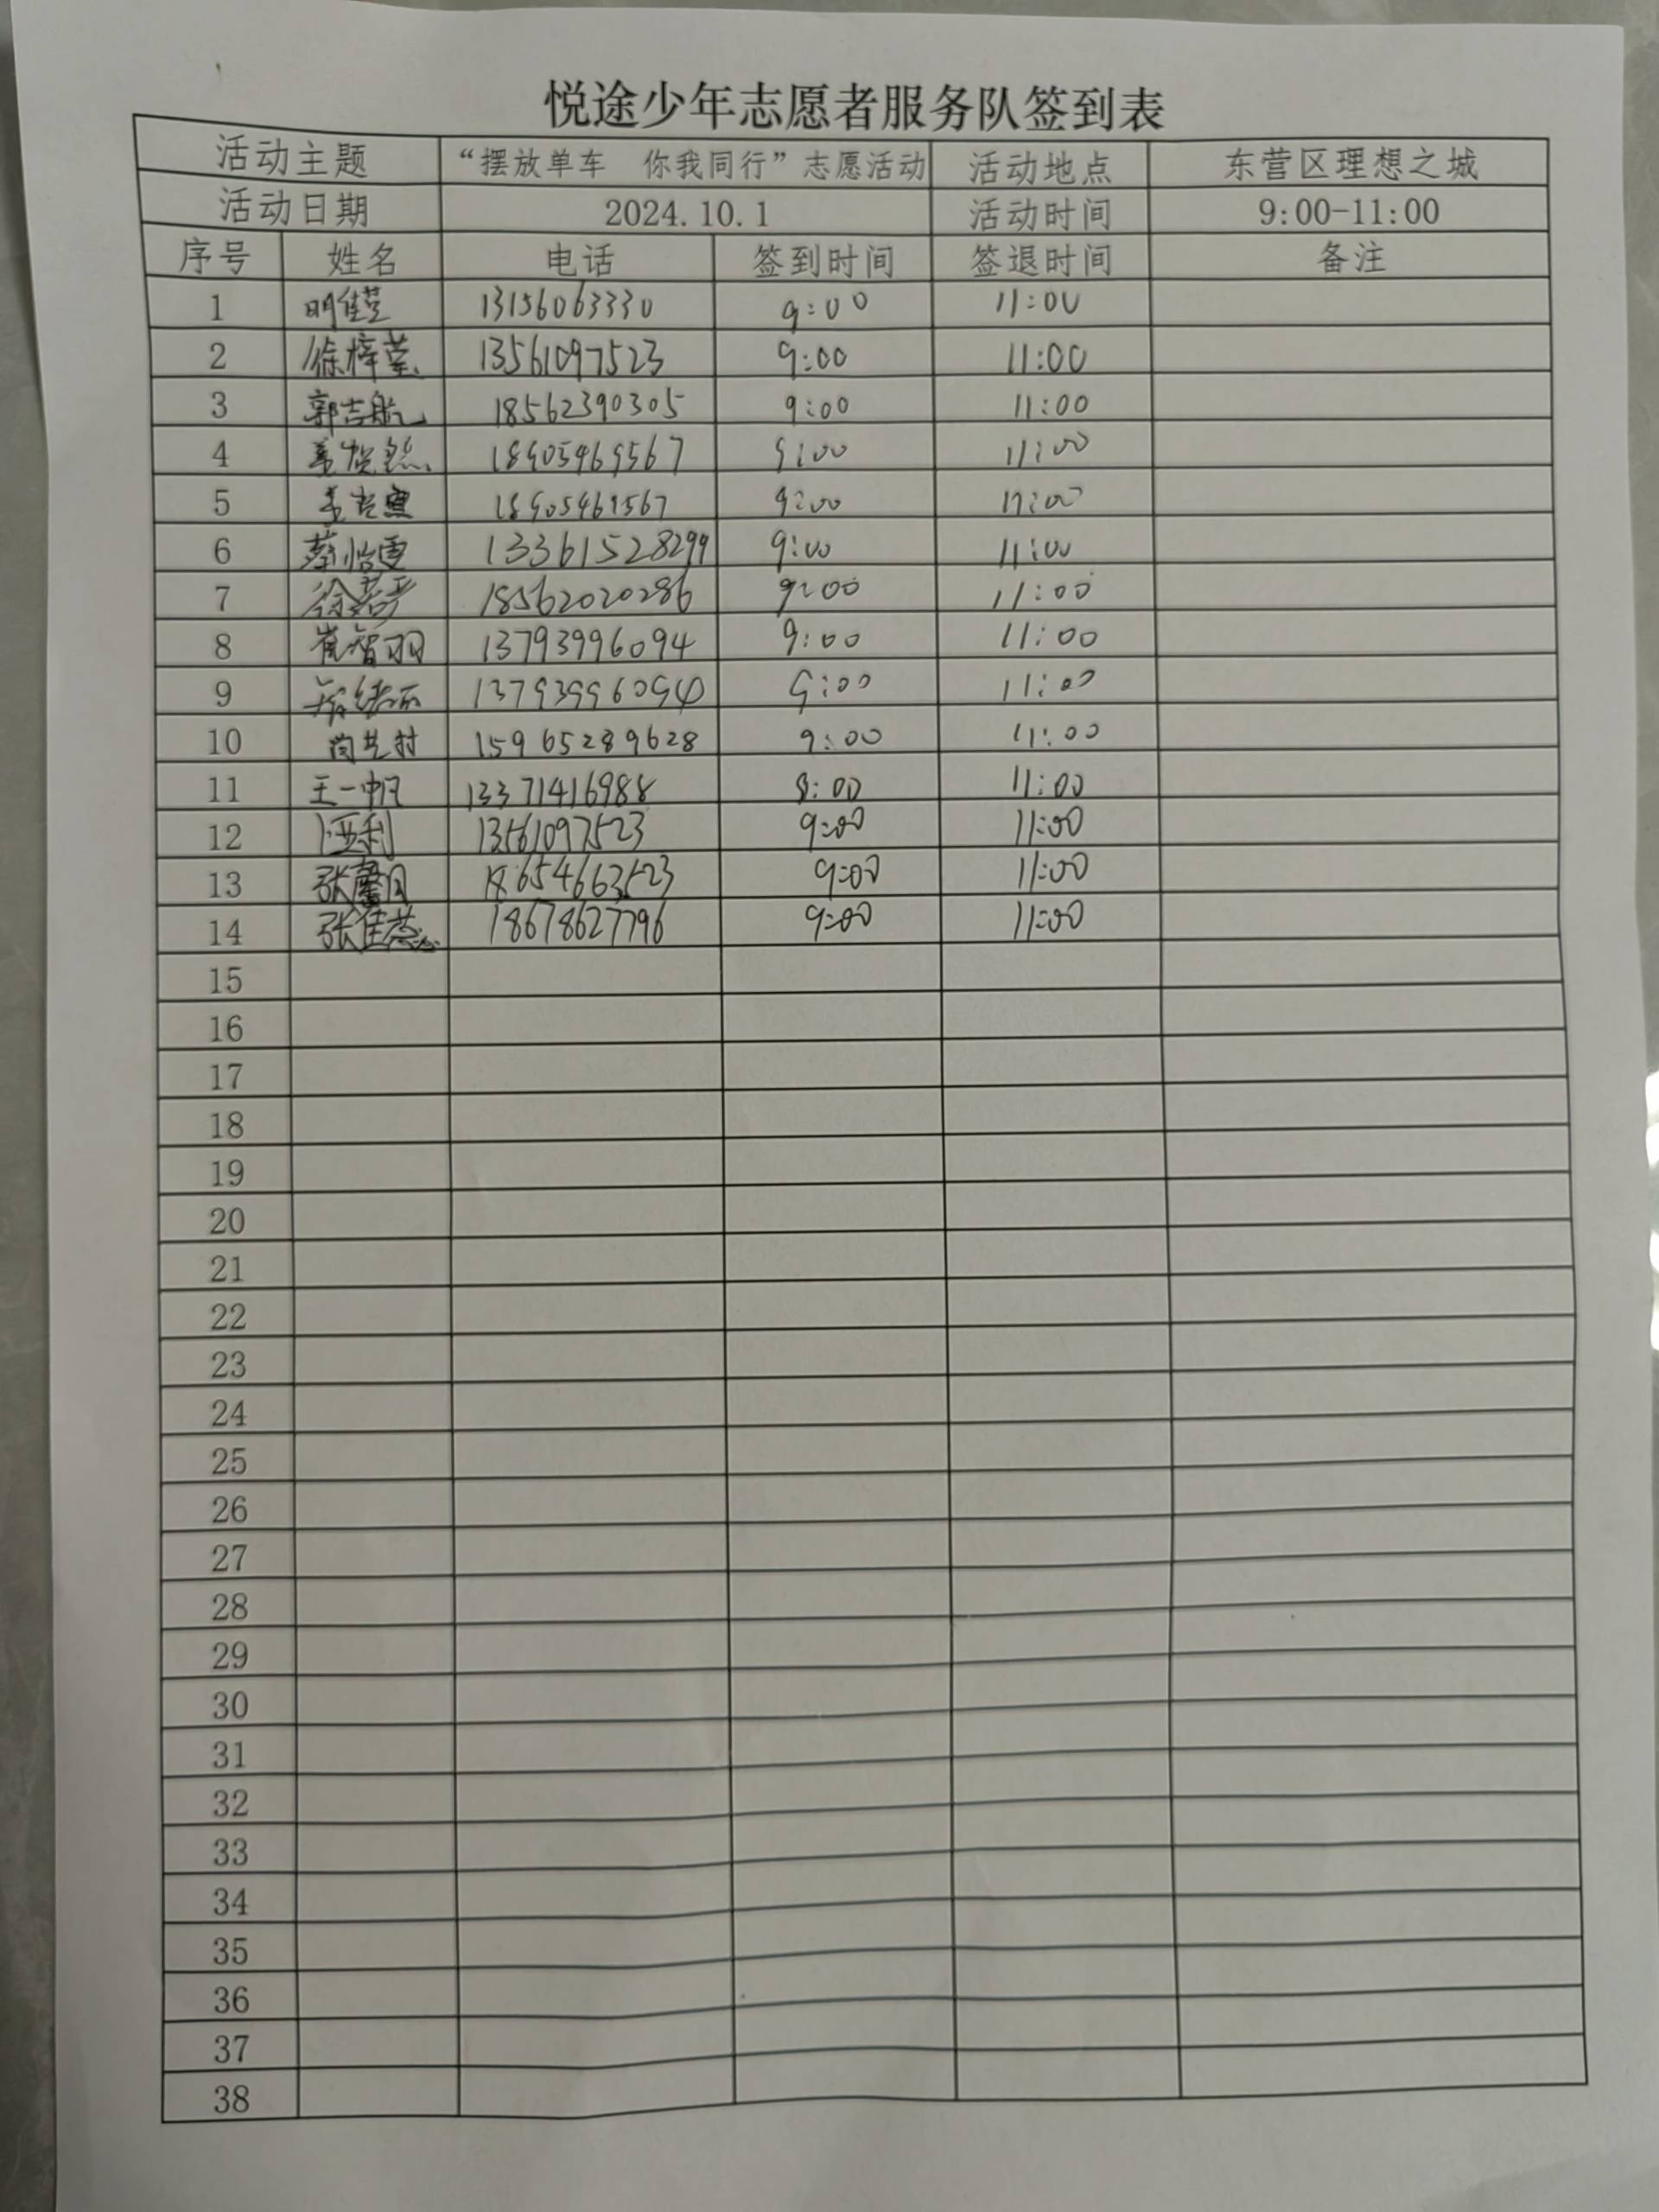 悦途少年志愿者服务队签到表
活动主题 “摆放单车 你我同行”志愿活动 活动地点 东营区理想之城
活动日期 2024.10.1 活动时间 9:00-11:00
序号 姓名 电话 签到时间 签退时间 备注
1 明佳莹 13156063330 9:00 11:00
2 徐梓莹 13561097523 9:00 11:00
3 郭吉航 18562390305 9:00 11:00
4 18905469567 9:00 11:00
5 9:00 11:00
6 蔡怡雯 13361528299 9:00 11:00
7 18562020286 9:00 11:00
8 崔智羽 13793996094 9:00 11:00
9 13793996094 9:00 11:00
10 15965289628 9:00 11:00
11 王一帆 13371416988 9:00 11:00
12 13561097523 9:00 11:00
13 张馨月 18654663523 9:00 11:00
14 张佳蕊 18678627796 9:00 11:00
15
16
17
18
19
20
21
22
23
24
25
26
27
28
29
30
31
32
33
34
35
36
37
38